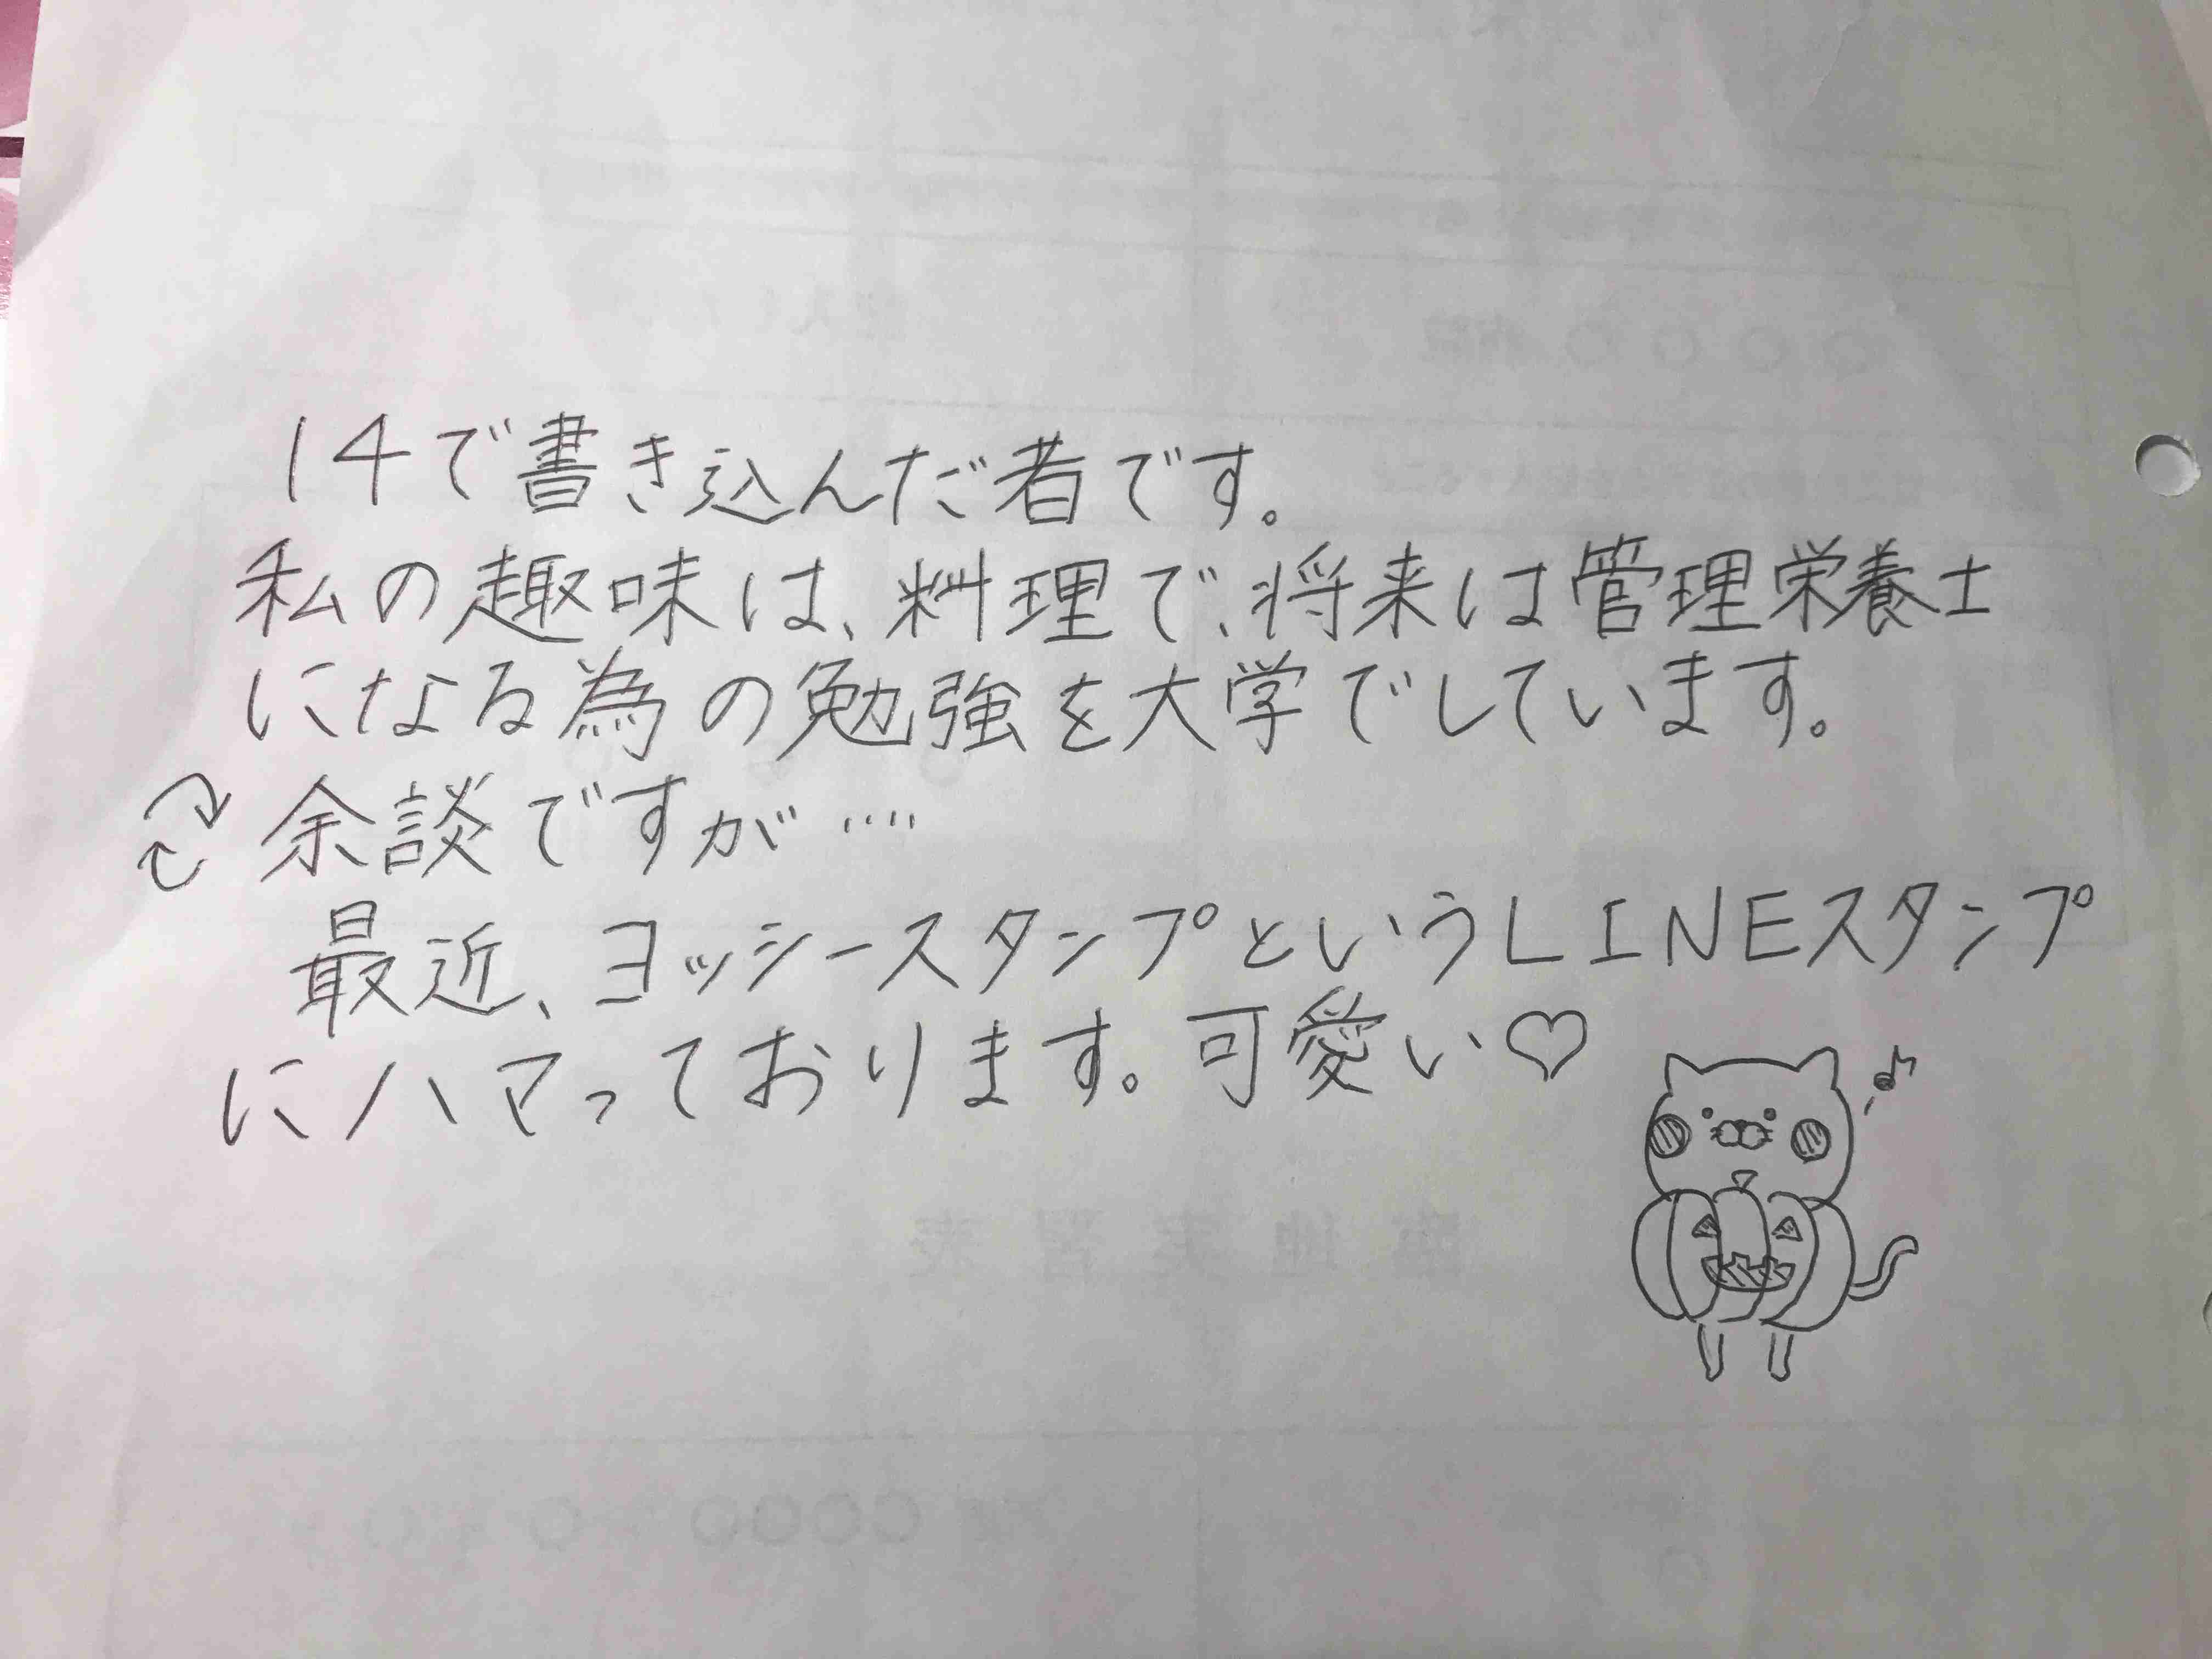 14で書き込んだ者です。
私の趣味は、料理で、将来は管理栄養士
になる為の勉強を大学でしています。
余談ですが…
最近、ヨッシースタンプというLINEスタンプ
にハマっております。可愛い♡
臨地実習表